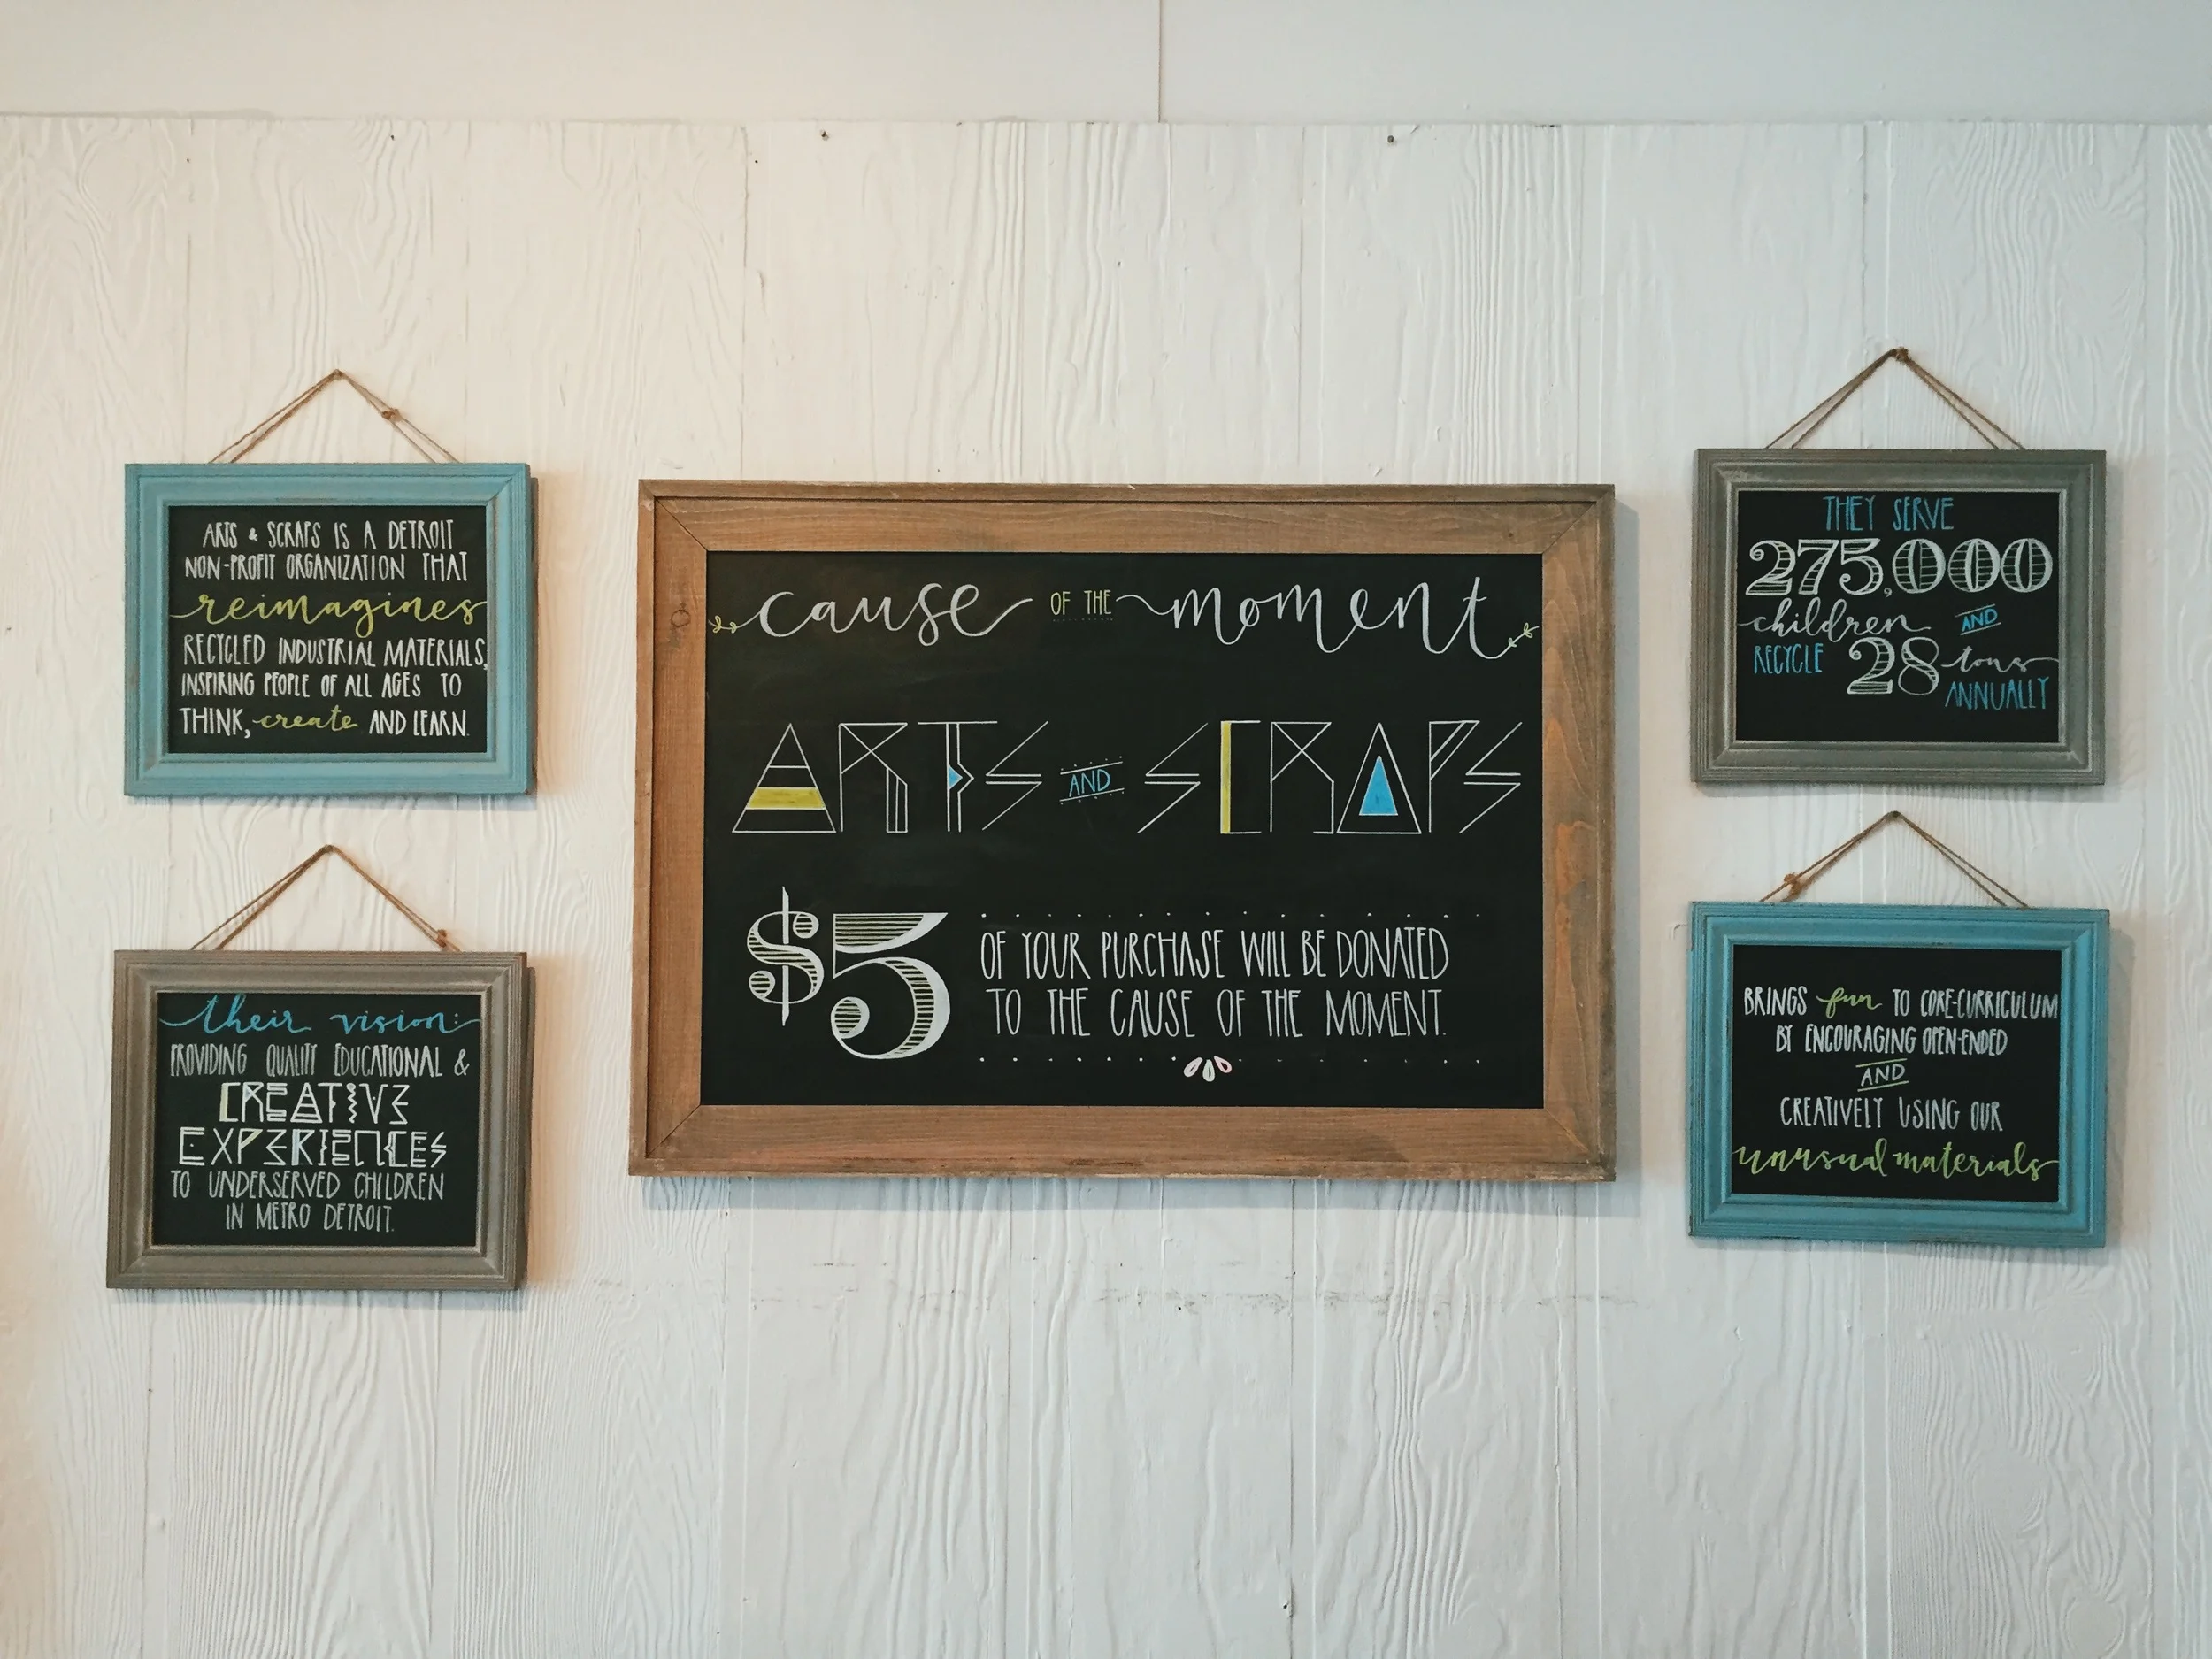 ARTS & SCRAPS IS A DETROIT
NON-PROFIT ORGANIZATION THAT
reimagines
RECYCLED INDUSTRIAL MATERIALS,
INSPIRING PEOPLE OF ALL AGES TO
THINK, create AND LEARN.
their vision:
PROVIDING QUALITY EDUCATIONAL &
CREATIVE
EXPERIENCES
TO UNDERSERVED CHILDREN
IN METRO DETROIT.
cause OF THE moment
ARTS AND SCRAPS
$5
OF YOUR PURCHASE WILL BE DONATED
TO THE CAUSE OF THE MOMENT.
THEY SERVE
275,000
children AND
RECYCLE 28 tons
ANNUALLY
BRINGS fun TO CORE-CURRICULUM
BY ENCOURAGING OPEN-ENDED
AND
CREATIVELY USING OUR
unusual materials